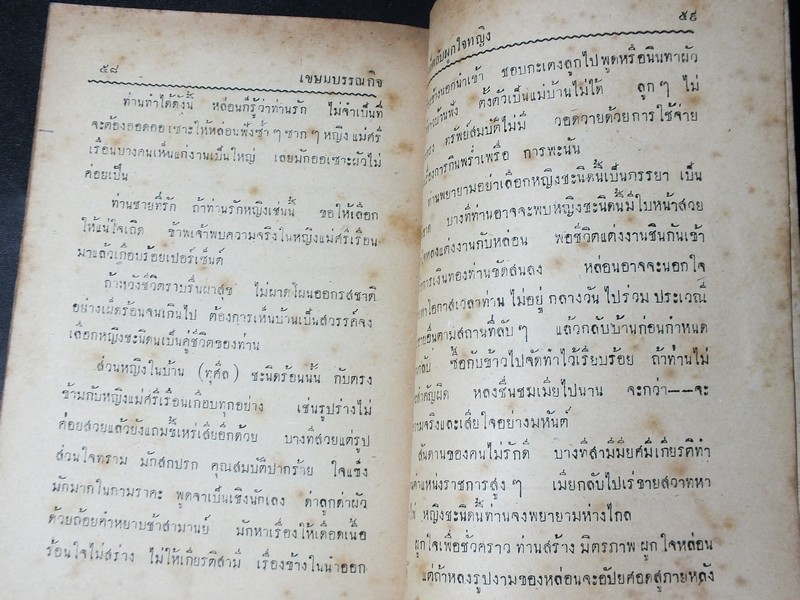 ๕๘
เขษมบรรณกิจ
ท่านทำได้ดังนี้ หล่อนก็รู้ว่าท่านรัก ไม่จำเป็นที่
จะต้องออดออเซาะให้หล่อนฟังซ้ำ ๆ ซาก ๆ หญิงแม่ศรี
เรือนบางคนเห็นแก่งานเป็นใหญ่ เลยมักออเซาะผัวไม่
ค่อยเป็น
ท่านชายที่รัก ถ้าท่านรักหญิงเช่นนี้ ขอให้เลือก
ให้แน่ใจเถิด ข้าพเจ้าพบความจริงในหญิงแม่ศรีเรือน
มาแล้วเกือบร้อยเปอร์เซ็นต์
ถ้าหวังชีวิตราบรื่นผาสุข ไม่ผาดโผนออกรสชาติ
อย่างเผ็ดร้อนจนเกินไป ต้องการเห็นบ้านเป็นสวรรค์จง
เลือกหญิงชะนิดนเป็นคู่ชีวิตของท่าน
ส่วนหญิงในบ้าน (ทุศีล) ชะนิดร้อนนั้น กับตรง
ข้ามกับหญิงแม่ศรีเรือนเกือบทุกอย่าง เช่นรูปร่างไม่
ค่อยสวยแล้วยังแถมขี้เหร่เสียอีกด้วย บางที่สวยแต่รูป
ส่วนใจทราม มักสกปรก คุณสมบัติปากร้าย ใจแข็ง
มักมากในกามราคะ พูดจาเป็นเชิงนักเลง ด่าลูกด่าผัว
ด้วยถ้อยคำหยาบช้าสามานย์ มักหาเรื่องให้เดือดเนื้อ
ร้อนใจไม่สร่าง ไม่ให้เกียรติสามี เรื่องข้างในนำออก
๕๙
กับผูกใจหญิง
นอกนำเข้า ชอบกะเตงลูกไปพูดหรือนินทาผัว
บ้านฟัง ตั้งตัวเป็นแม่บ้านไม่ได้ ลูก ๆ ไม่
ทรัพย์สมบัติไม่มี วอดวายด้วยการใช้จ่าย
การกินพร่ำเพรื่อ การพะนัน
ท่านพยายามอย่าเลือกหญิงชะนิดนี้เป็นภรรยา เป็น
บางที่ท่านอาจจะพบหญิงชะนิดนี้มีใบหน้าสวย
หลงแต่งงานกับหล่อน พอชีวิตแต่งงานชินกันเข้า
การเงินทองท่านขัดสนลง หล่อนอาจจะนอกใจ
หาโอกาสเวลาท่านไม่อยู่ กลางวันไปร่วมประเวณี
ชายอื่นตามสถานที่ลับ ๆ แล้วกลับบ้านก่อนกำหนด
กลับ ซื้อกับข้าวไปจัดทำไว้เรียบร้อย ถ้าท่านไม่
สำคัญผิด หลงชื่นชมเมียไปนาน จะกว่า——จะ
ความจริงและเสียใจอย่างมหันต์
สันดานของคนไม่รักดี บางที่สามีมียศมีเกียรติทำ
ตำแหน่งราชการสูง ๆ เมียกลับไปเร่ขายสวาทหา
หญิงชะนิดนี้ท่านจงพยายามห่างไกล
ผูกใจเพื่อชั่วคราว ท่านสร้าง มิตรภาพ ผูกใจหล่อน
แต่ถ้าหลงรูปงามของหล่อนจะอัปยศอดสูภายหลัง